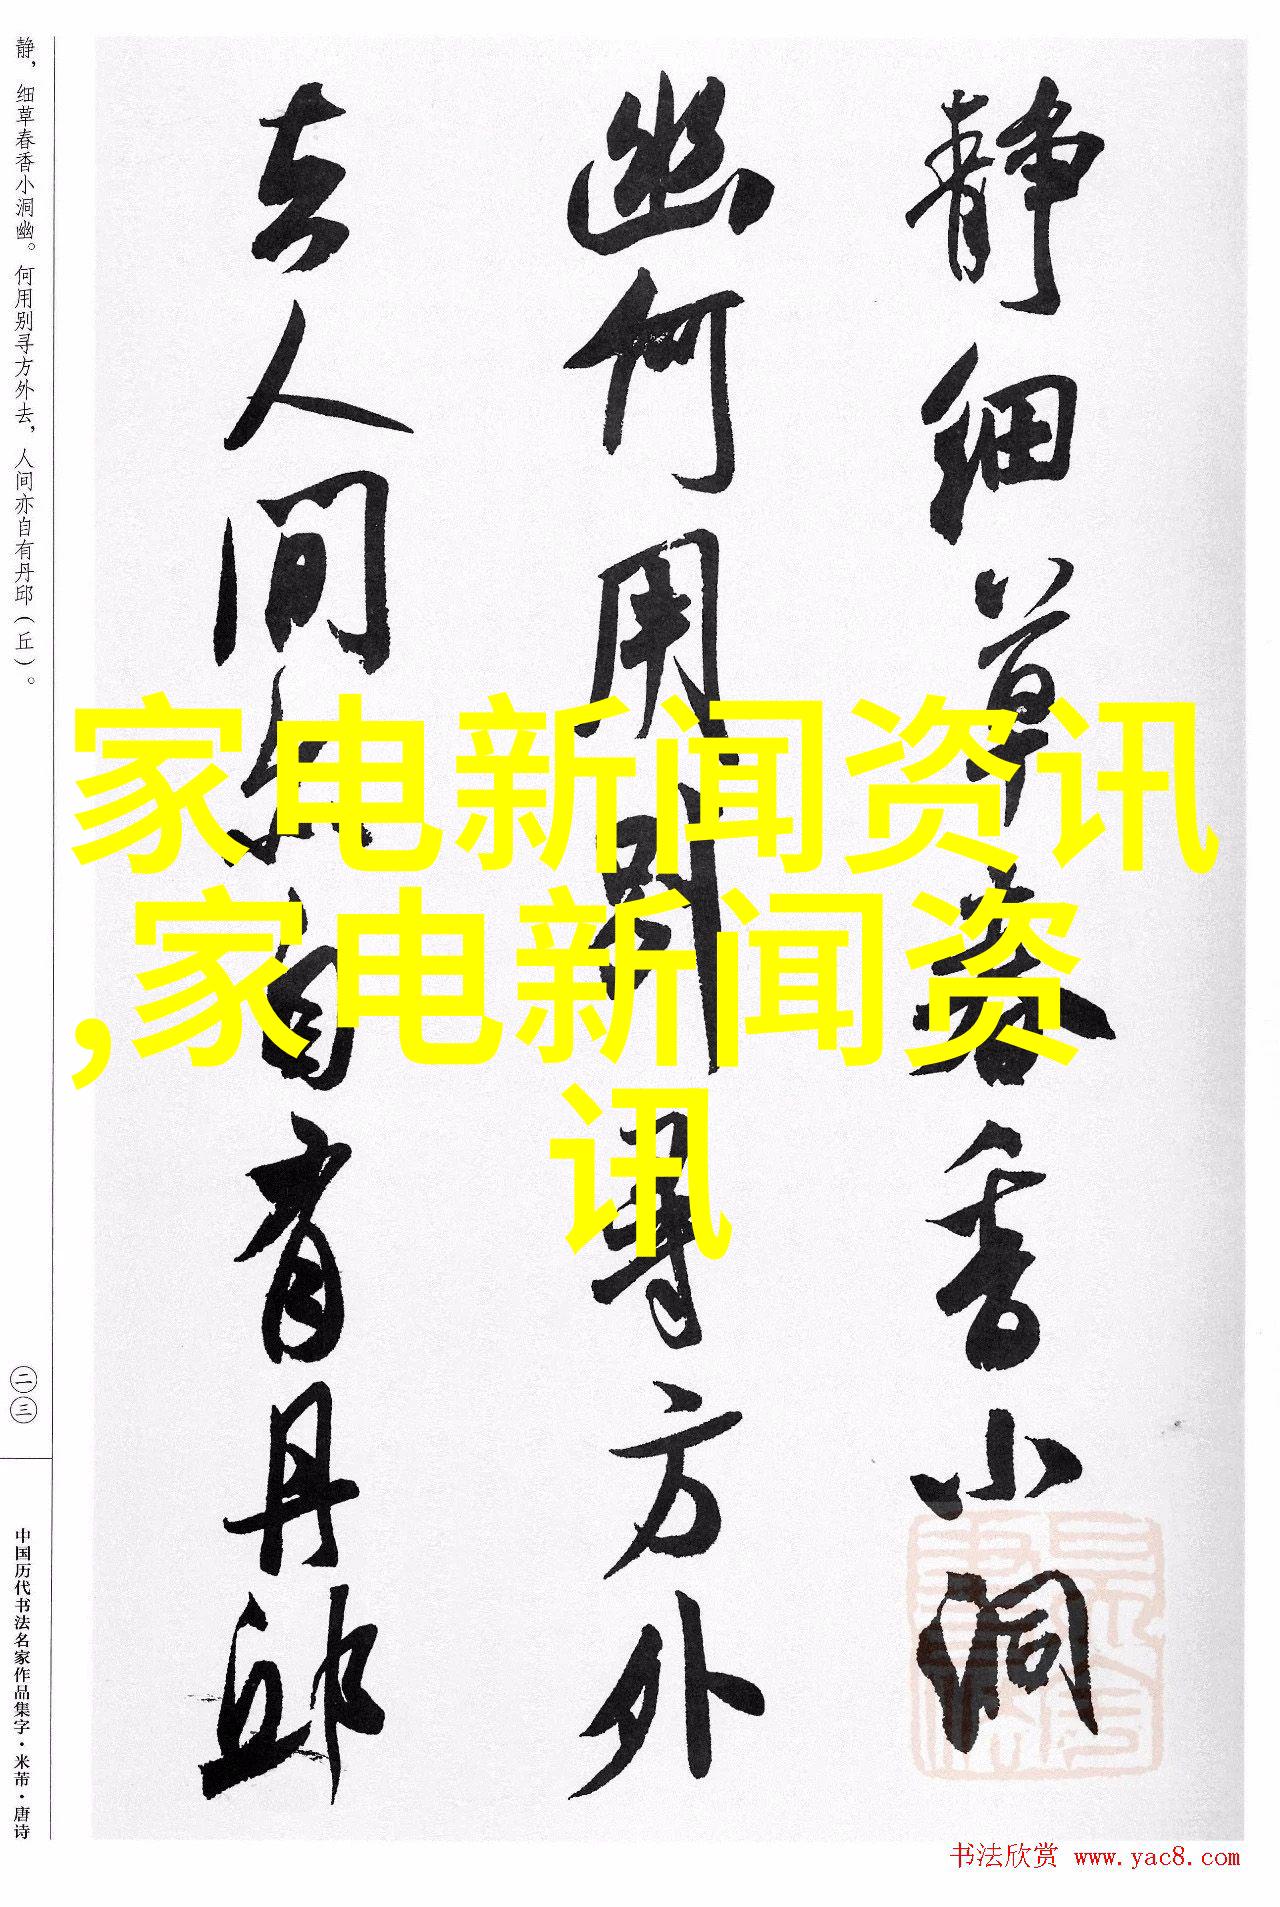 静细草春香小洞
幽何用别寻方外
去人间亦自有丹邱
静，细草春香小洞幽。何用别寻方外去，人间亦自有丹邱（丘）。
二三
中国历代书法名家作品集字·米芾·唐诗
家电新闻资讯
,家电新闻资
讯
书法欣赏 www.yac8.com